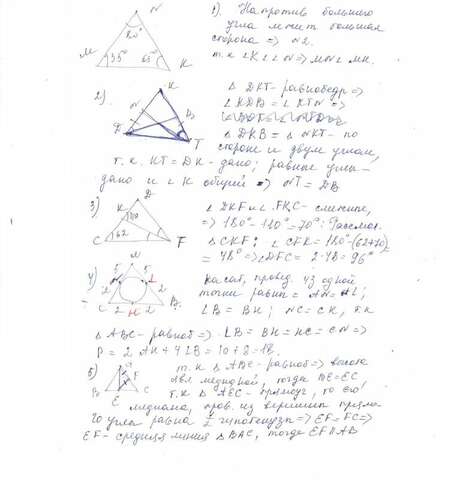 1). Напротив большего
угла лежит большая
сторона => №2.
т.к ∠K < ∠N => MN < MK.
N
80°
M 35° 65° K
2)
K
N B
D T
Δ DKT - равнобедр =>
∠KDB = ∠KTN =>
Δ DKB = Δ NKT - по
стороне и двум углам,
т.к. KT = DK - дано; равные углы-
дано и ∠K общий => NT = DB
3)
D
K
110
C 62 F
∠DKF и ∠FKC - смежные,
=> 180° - 110° = 70°. Рассмот.
Δ CKF; ∠CFK = 180° - (62+70)
= 48° => ∠DFC = 2·48 = 96°
4)
5 5
N L
2 2
C 2 H 2 B
Касат, провед из одной
точки равны = AN = AL;
LB = BH; NC = CH, т.к
Δ ABC - равноб => LB = BH = HC = CN =>
P = 2 AN + 4 LB = 10 + 8 = 18.
5)
F
B E C
т.к Δ ABC - равноб => высота
явл медианой, тогда BE = EC
т.к. Δ AEC - прямоуг, то его
медиана, пров. из вершины прямо
го угла равна ½ гипотенузы => EF = FC =>
EF - средняя линия Δ BAC, тогда EF || AB